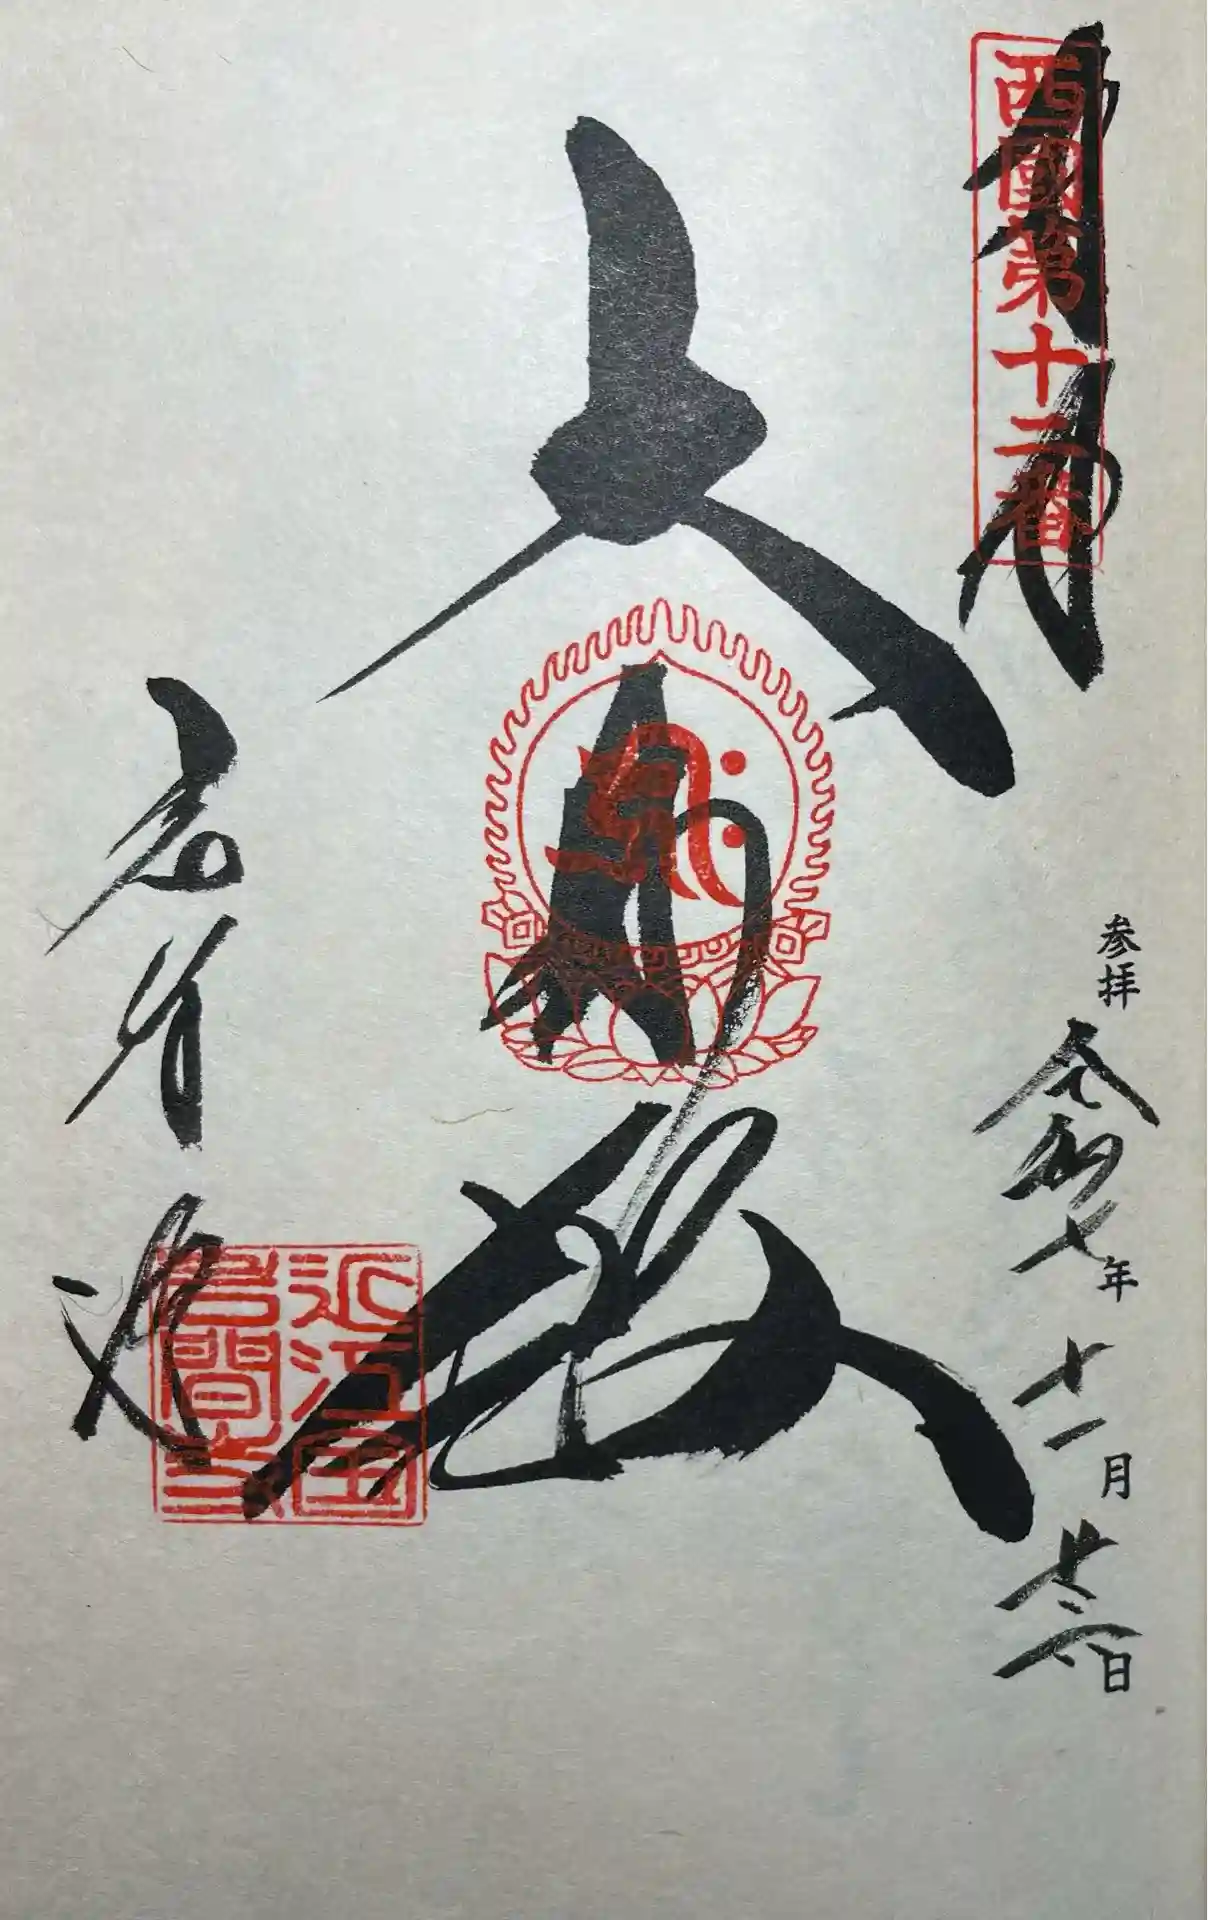 西國第十二番
奉拝
大悲殿
岩間寺
近江國
岩間寺
参拝
令和七年
十一月
廿三日